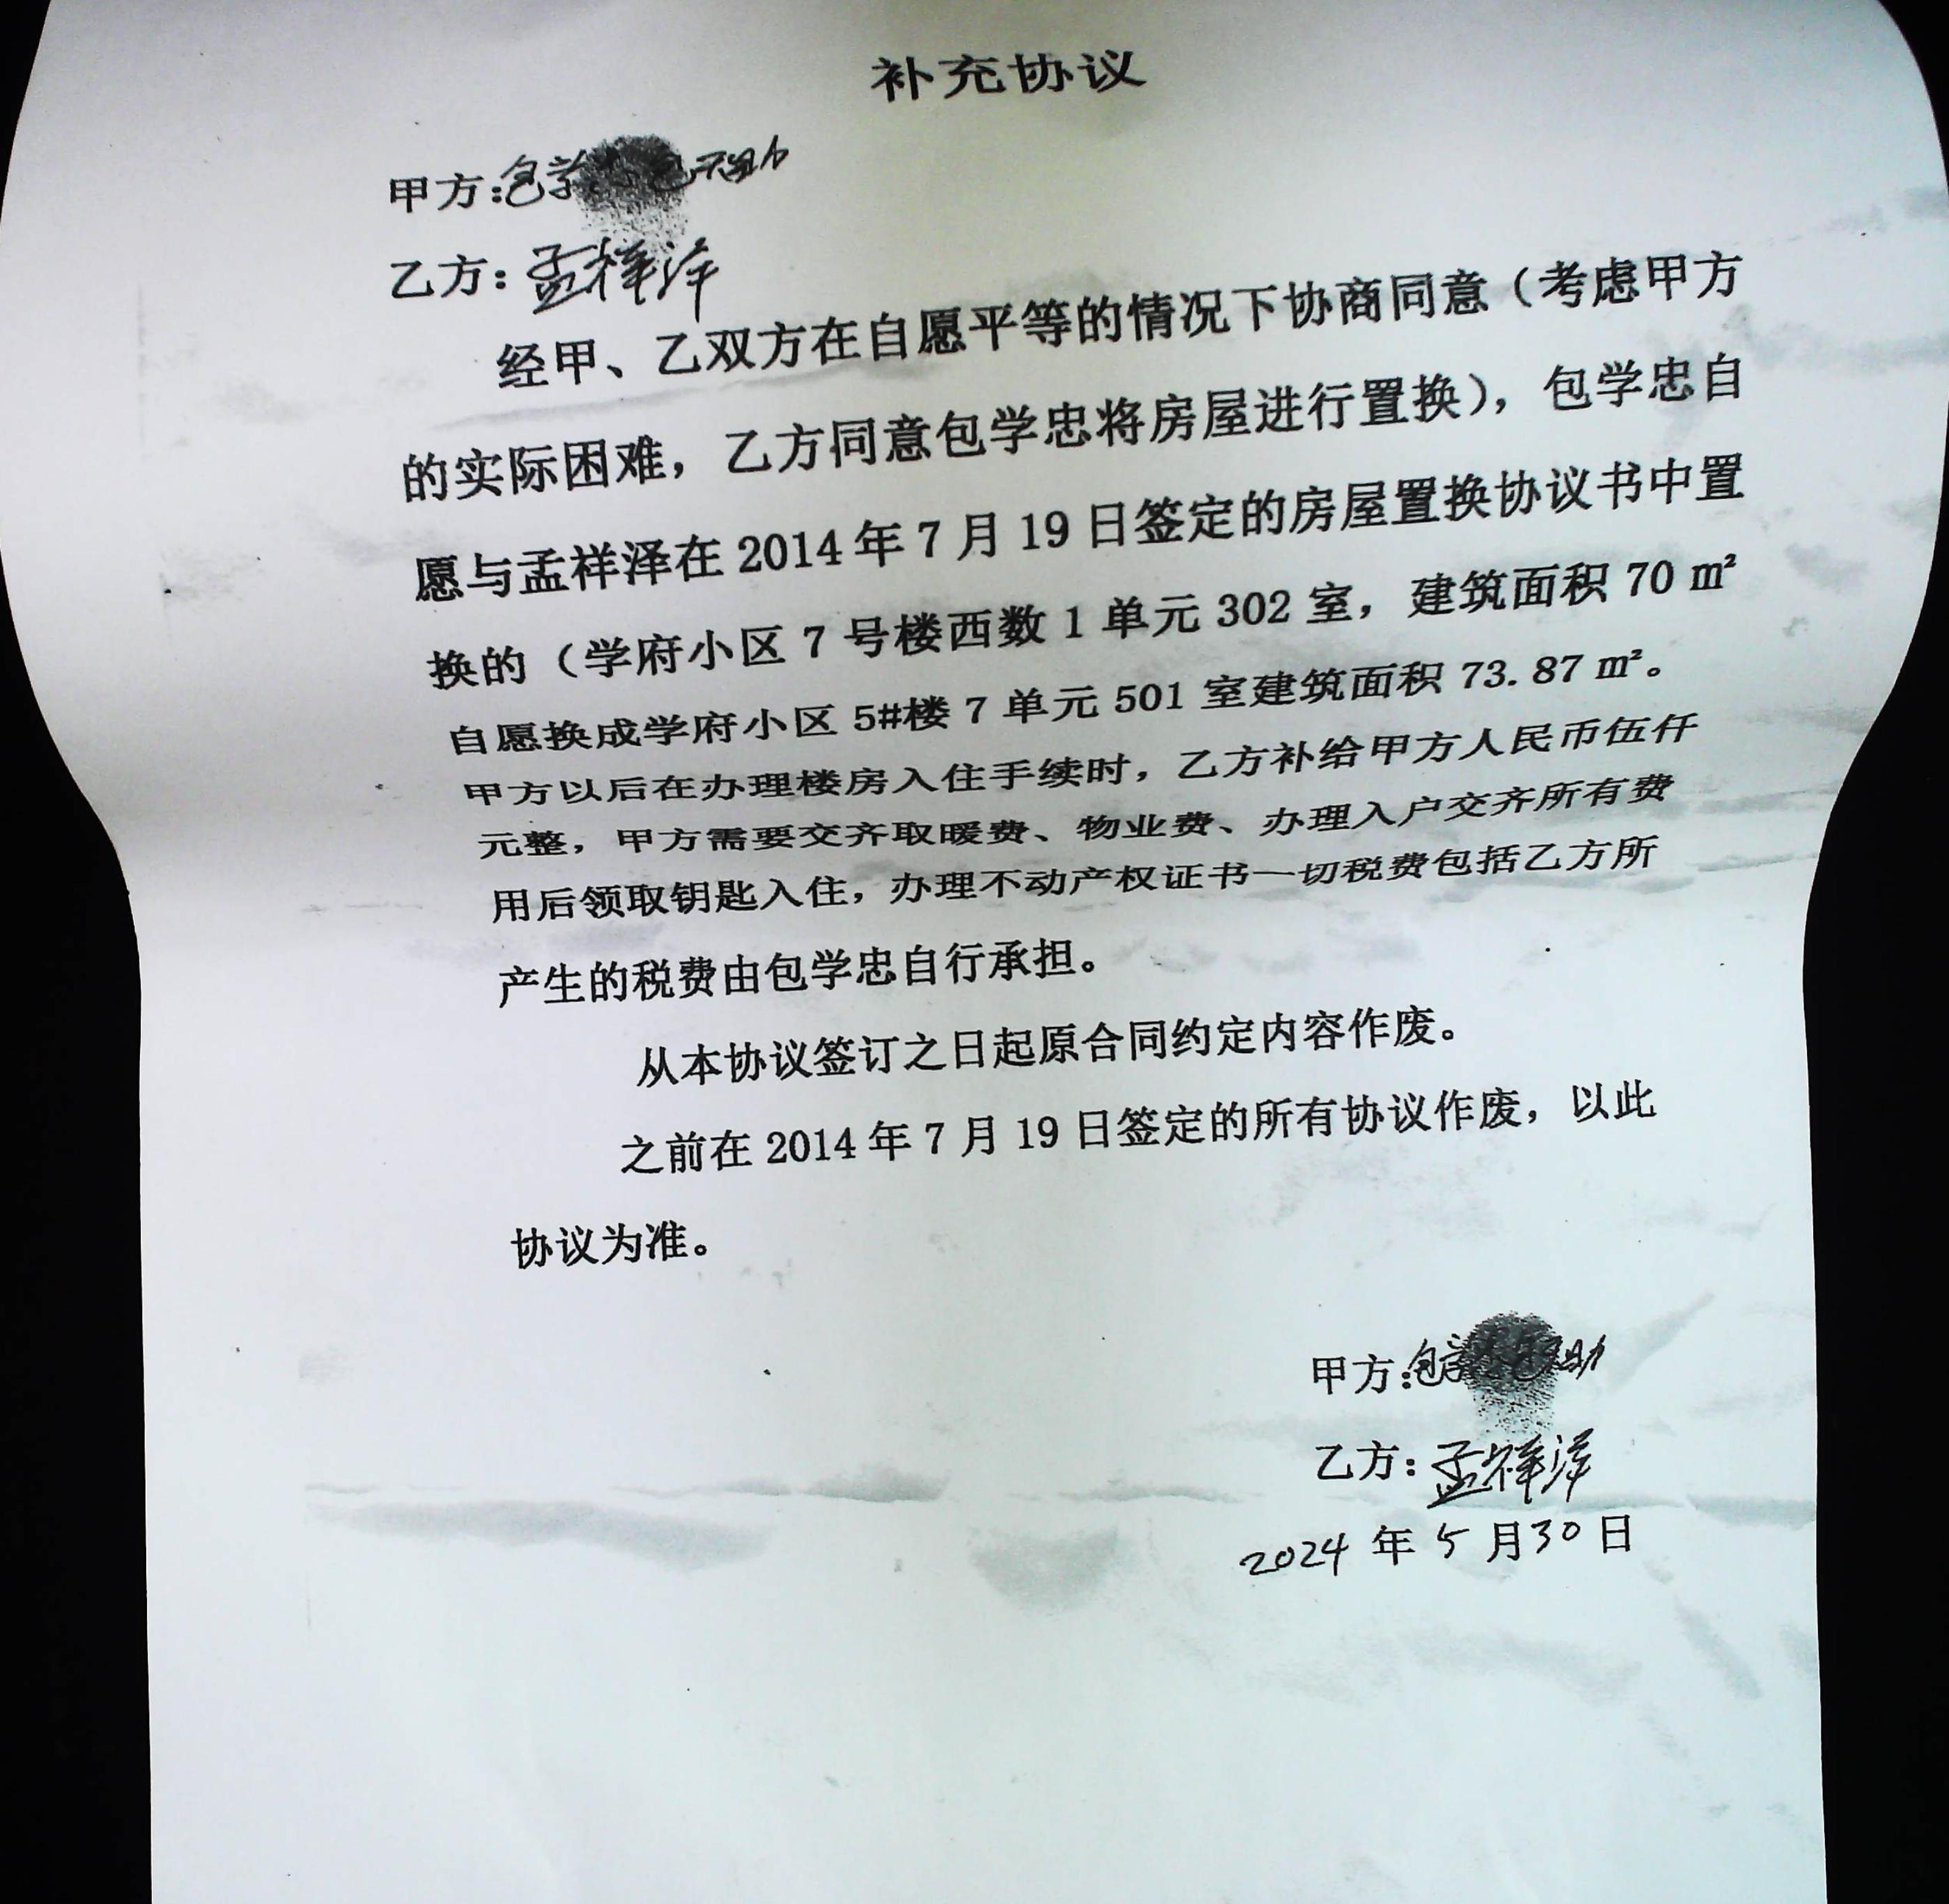 补充协议
甲方:包学
乙方:孟祥泽
经甲、乙双方在自愿平等的情况下协商同意（考虑甲方
的实际困难，乙方同意包学忠将房屋进行置换），包学忠自
愿与孟祥泽在2014年7月19日签定的房屋置换协议书中置
换的（学府小区7号楼西数1单元302室，建筑面积70㎡
自愿换成学府小区5#楼7单元501室建筑面积73.87㎡。
甲方以后在办理楼房入住手续时，乙方补给甲方人民币伍仟
元整，甲方需要交齐取暖费、物业费、办理入户交齐所有费
用后领取钥匙入住，办理不动产权证书一切税费包括乙方所
产生的税费由包学忠自行承担。
从本协议签订之日起原合同约定内容作废。
之前在2014年7月19日签定的所有协议作废，以此
协议为准。
甲方:包学
乙方:孟祥泽
2024年5月30日